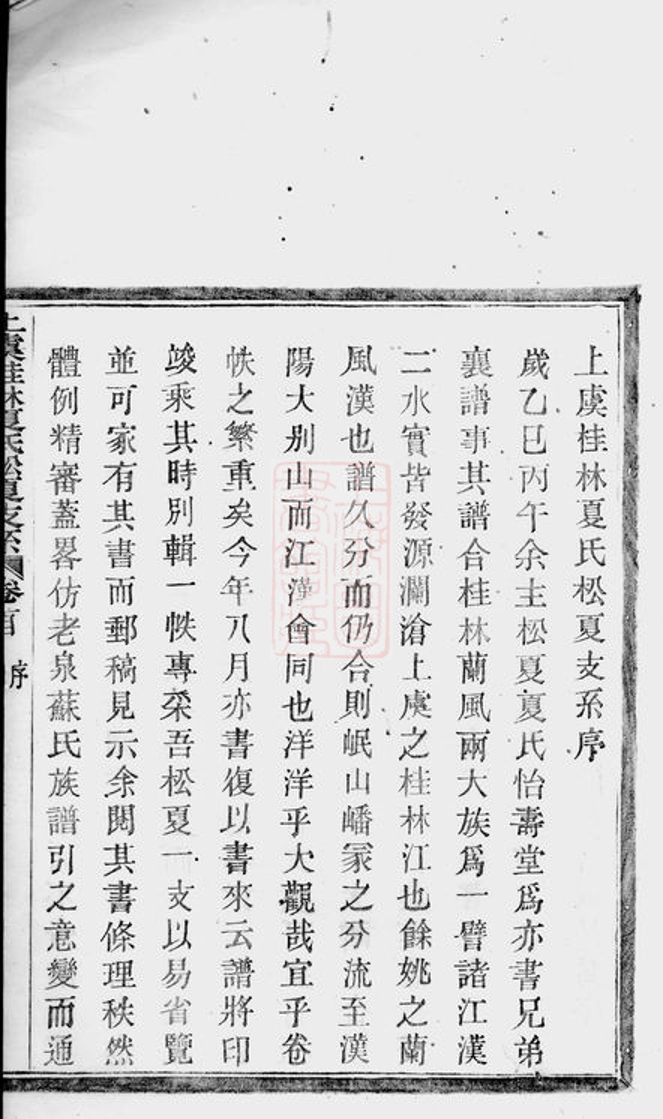 上虞桂林夏氏松夏支系序
歲乙巳丙午余主松夏夏氏怡壽堂爲亦書兄弟
襄譜事其譜合桂林蘭風兩大族爲一譬諸江漢
二水實皆發源瀾滄上虞之桂林江也餘姚之蘭
風漢也譜久分而仍合則岷山嶓冢之分流至漢
陽大別山而江漢會同也洋洋乎大觀哉宜乎卷
帙之繁重矣今年八月亦書復以書來云譜將印
竣乘其時別輯一帙專棨吾松夏一支以易省覽
並可家有其書而郵稿見示余閱其書條理秩然
體例精審蓋畧仿老泉蘇氏族譜引之意變而通
上虞桂林夏氏松夏支系 卷首 序